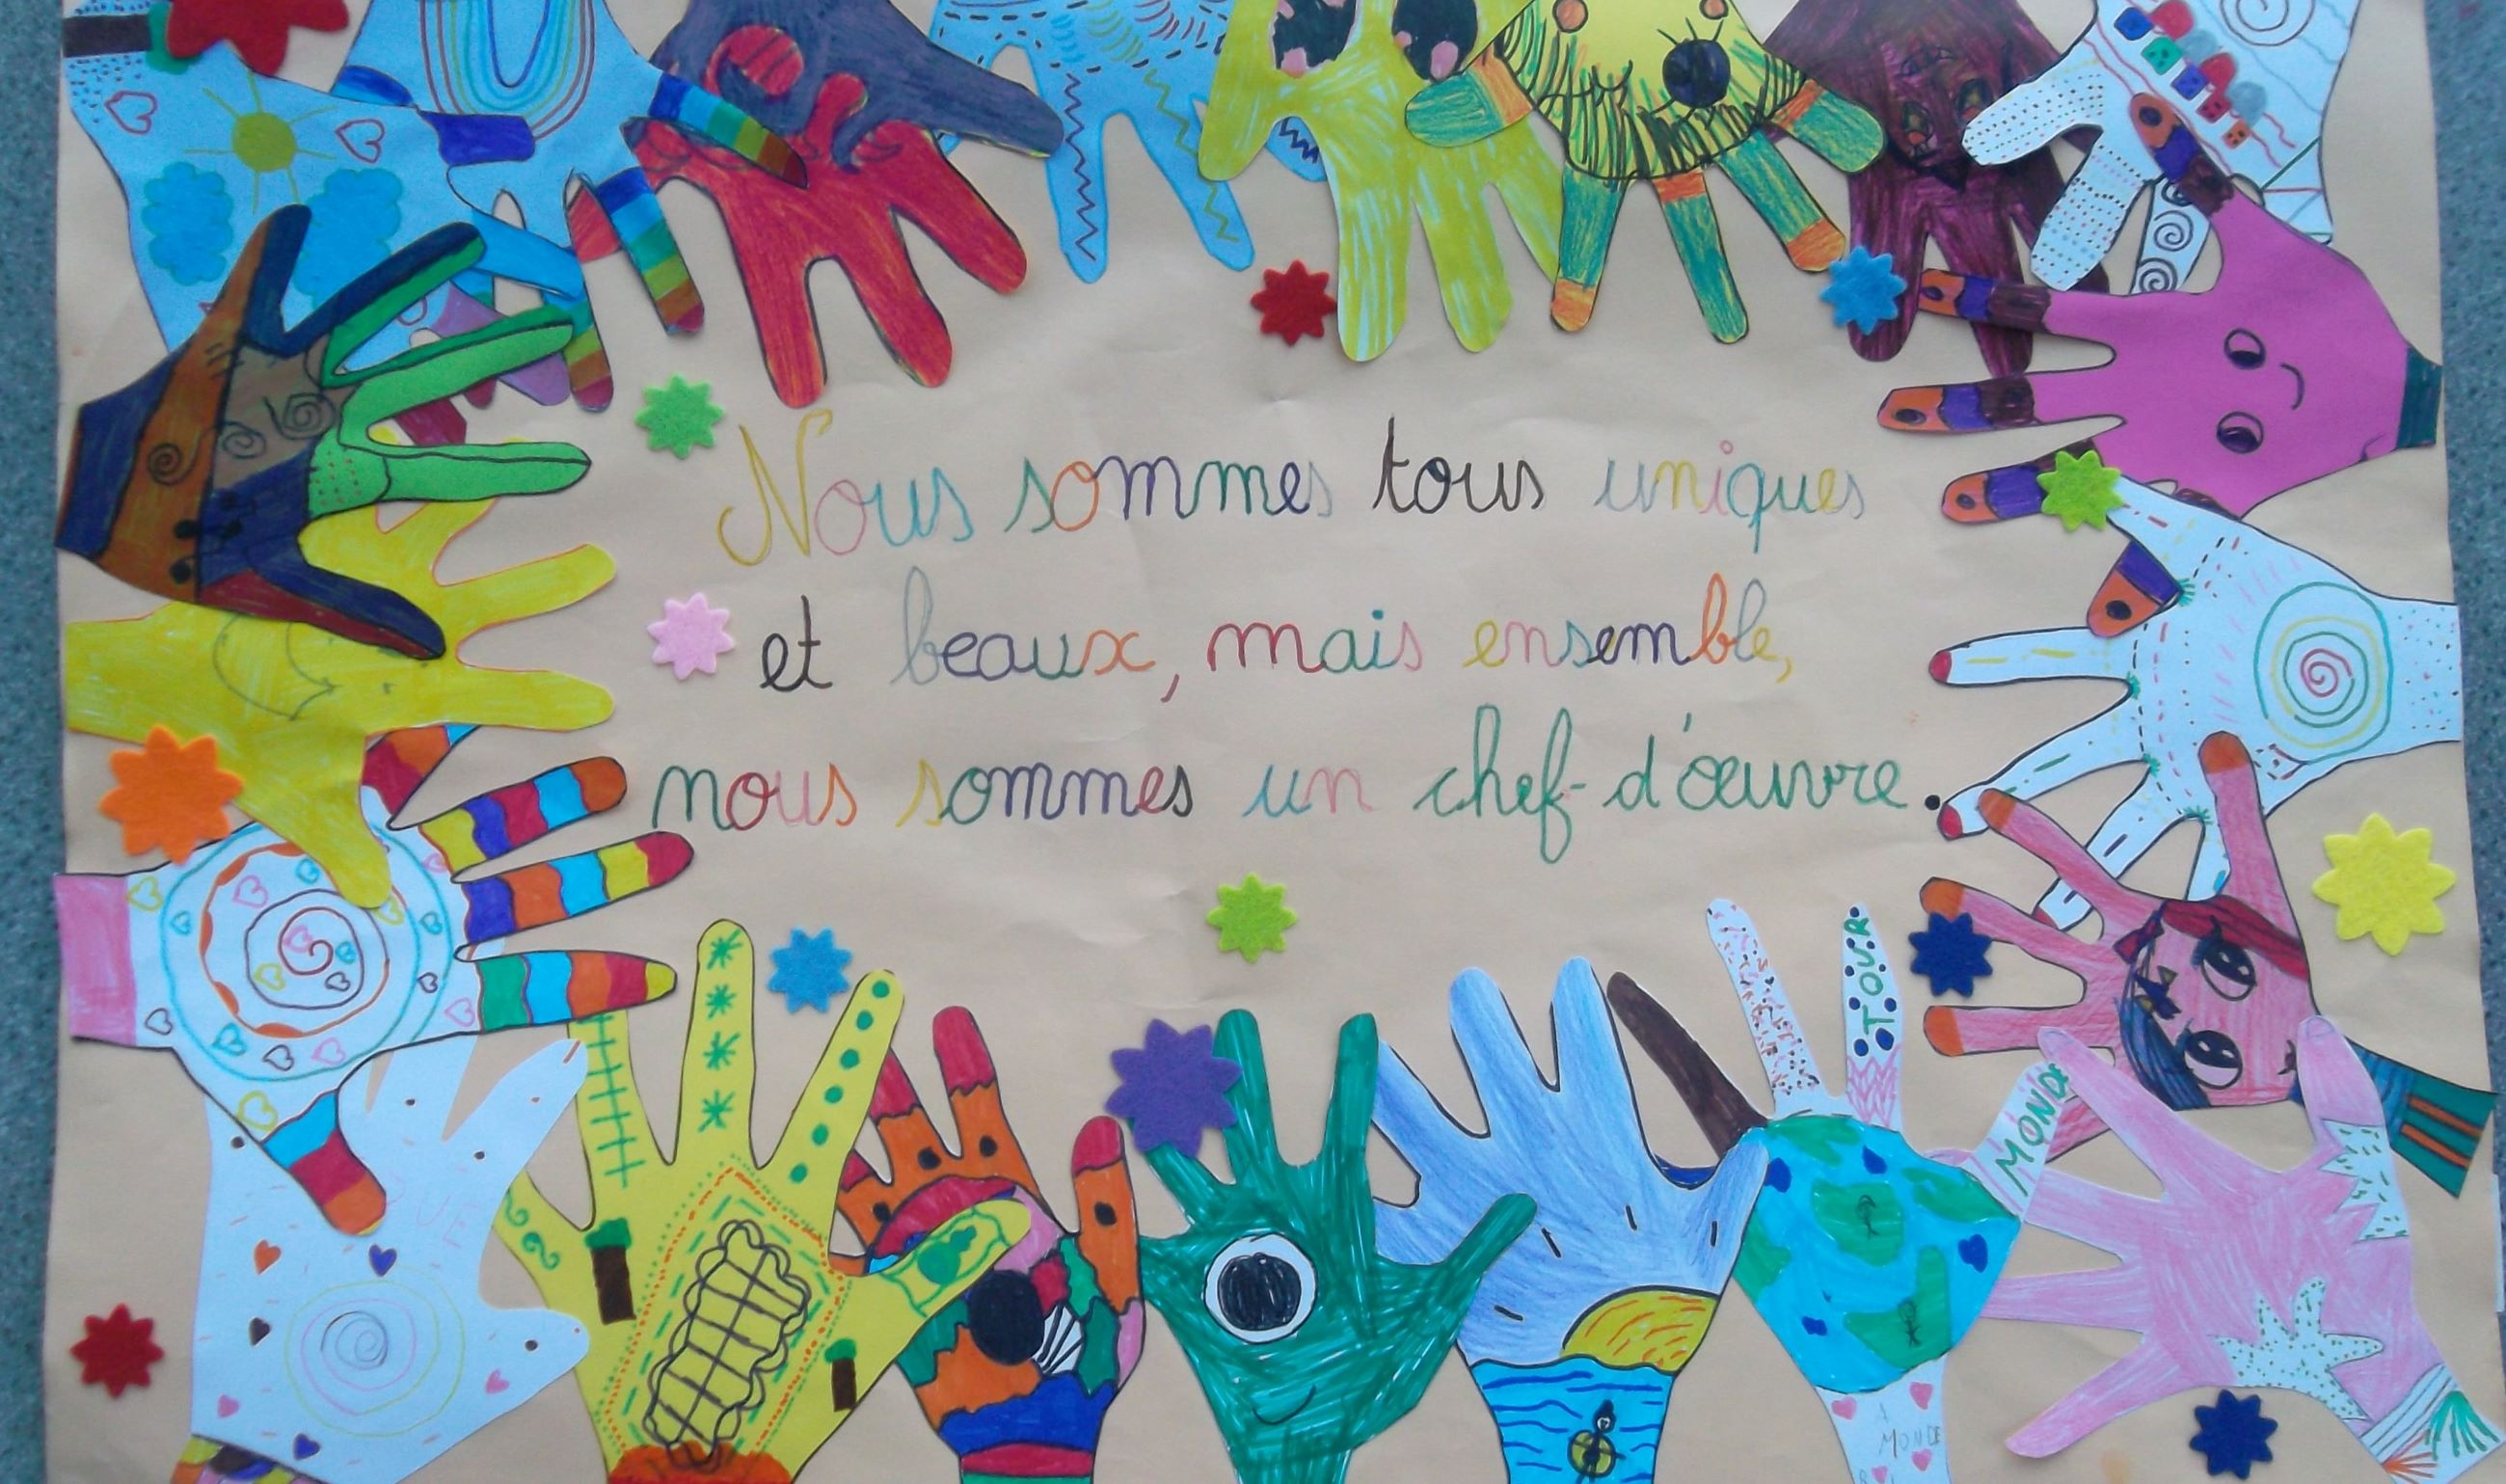 Nous sommes tous uniques
et beaux, mais ensemble,
nous sommes un chef-d'œuvre.
TOUR
MONDE
MONDE